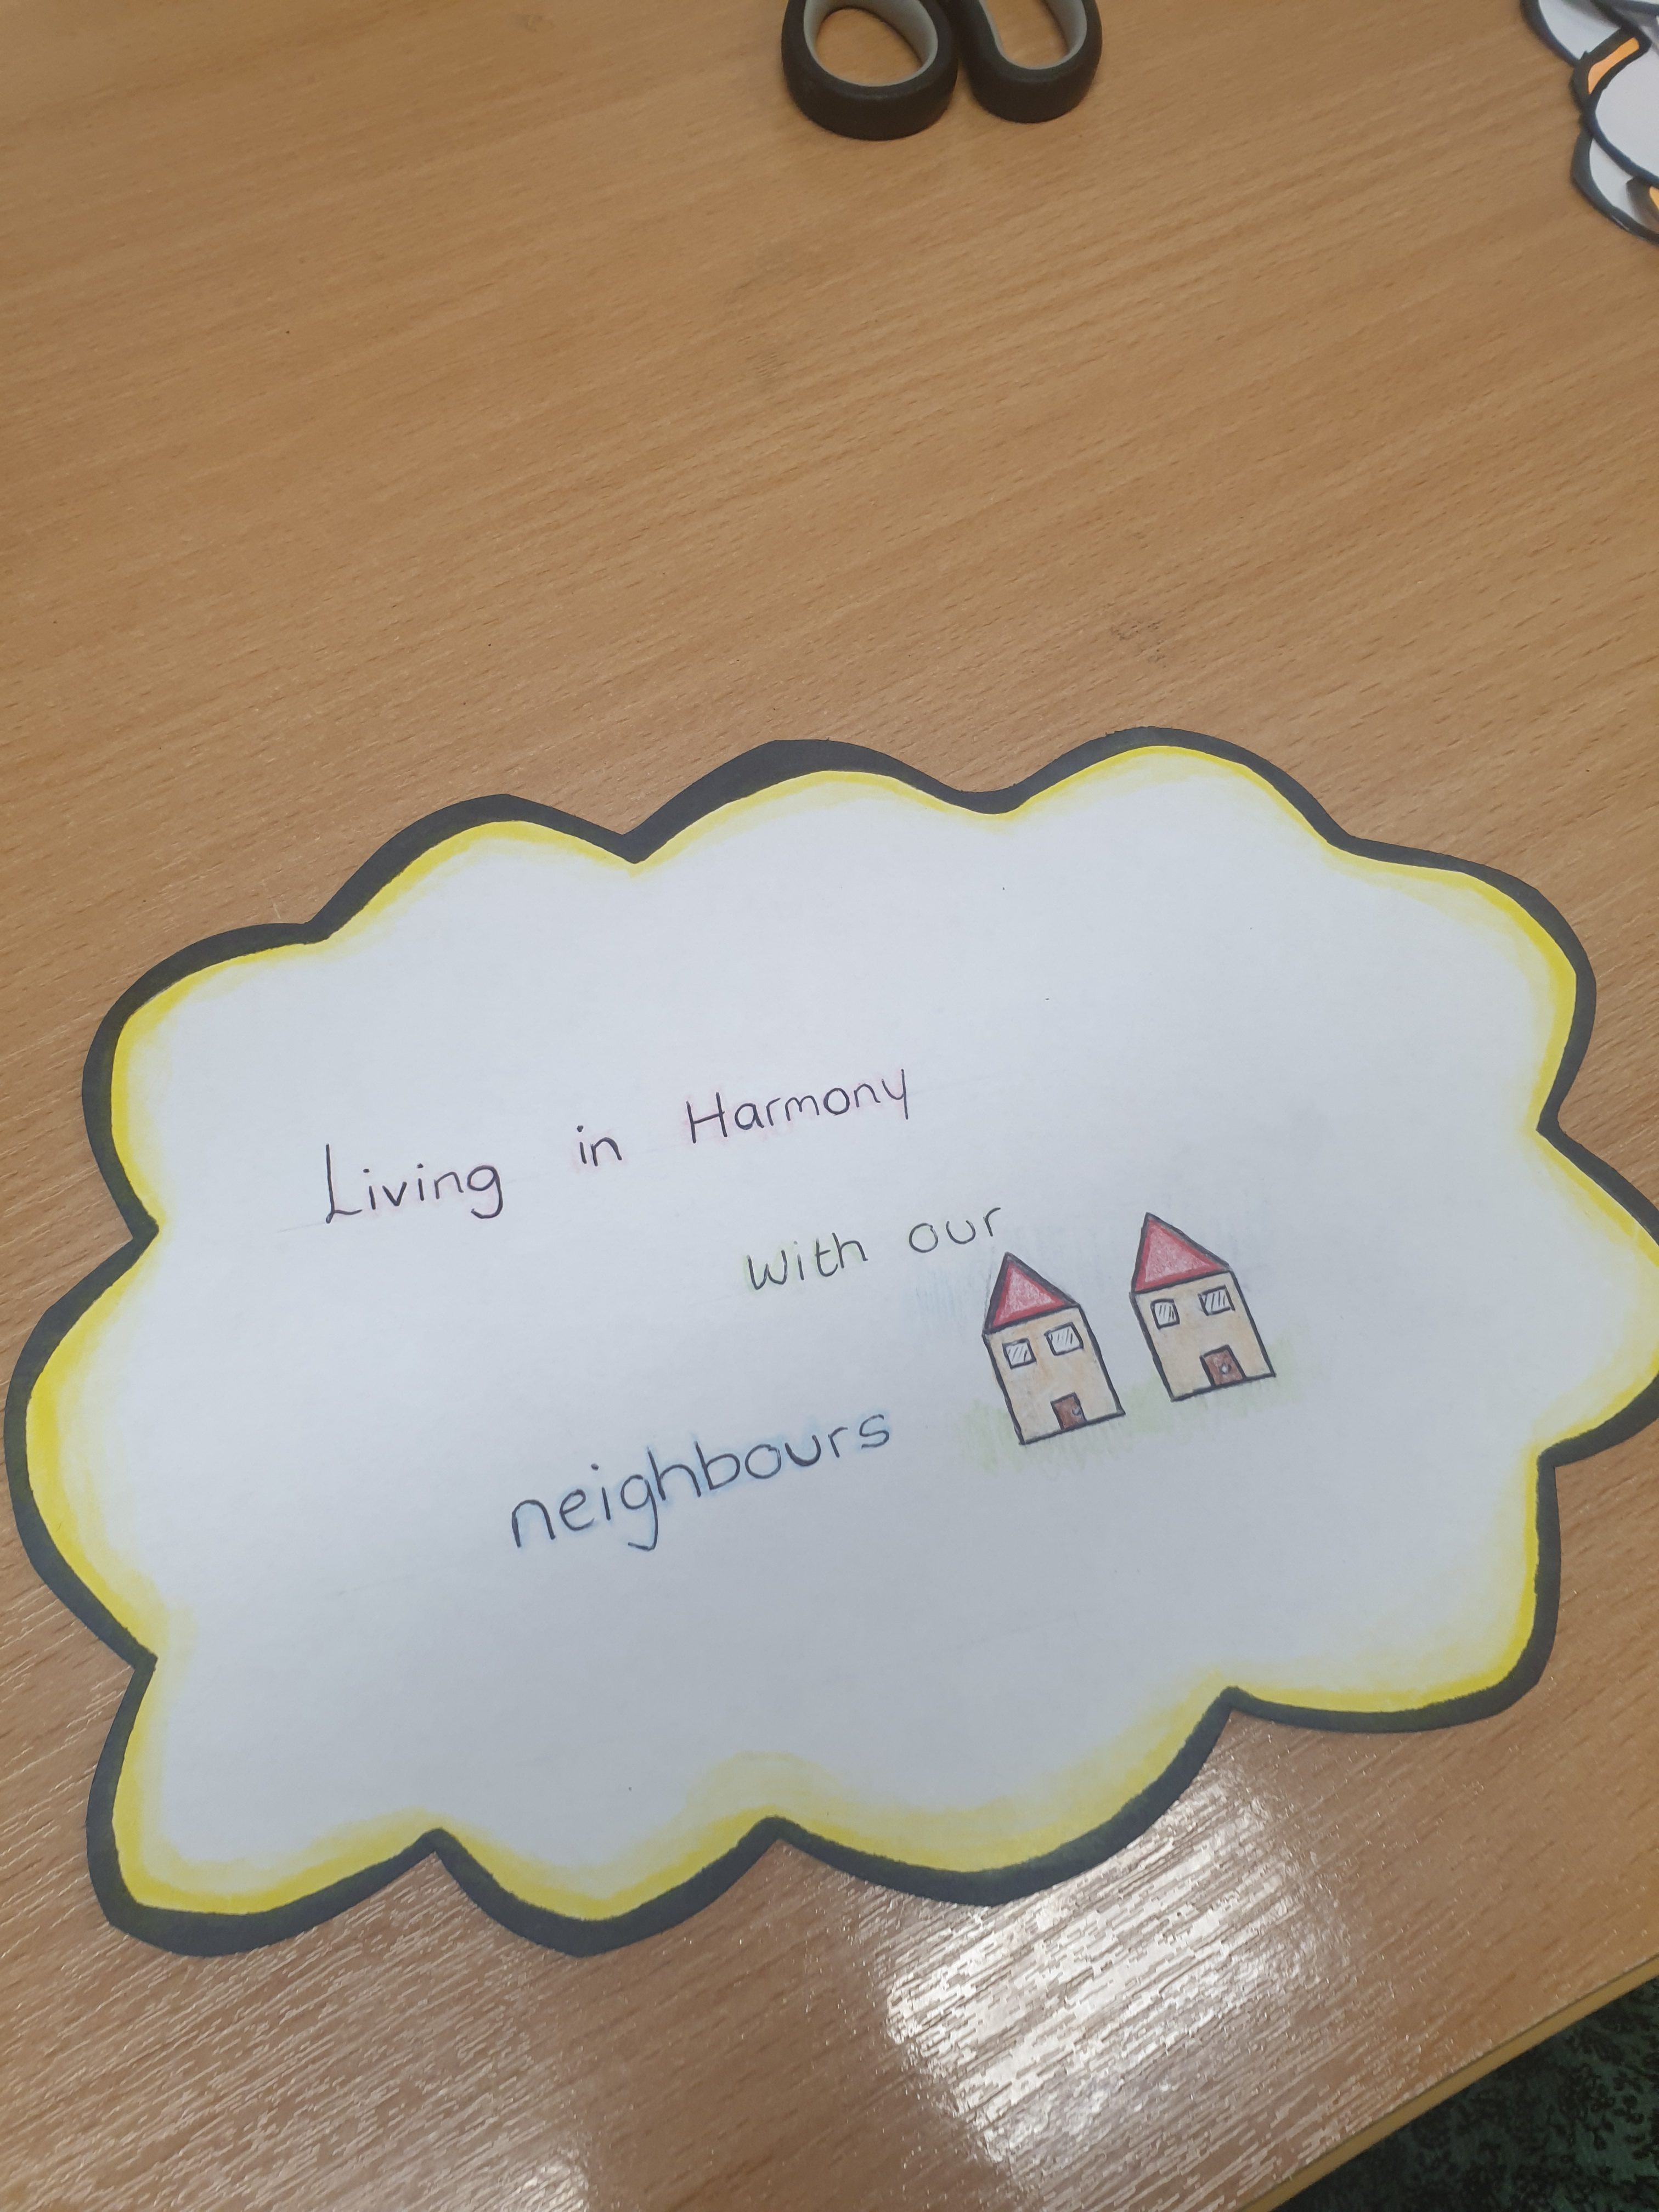 Living in Harmony
With our
neighbours